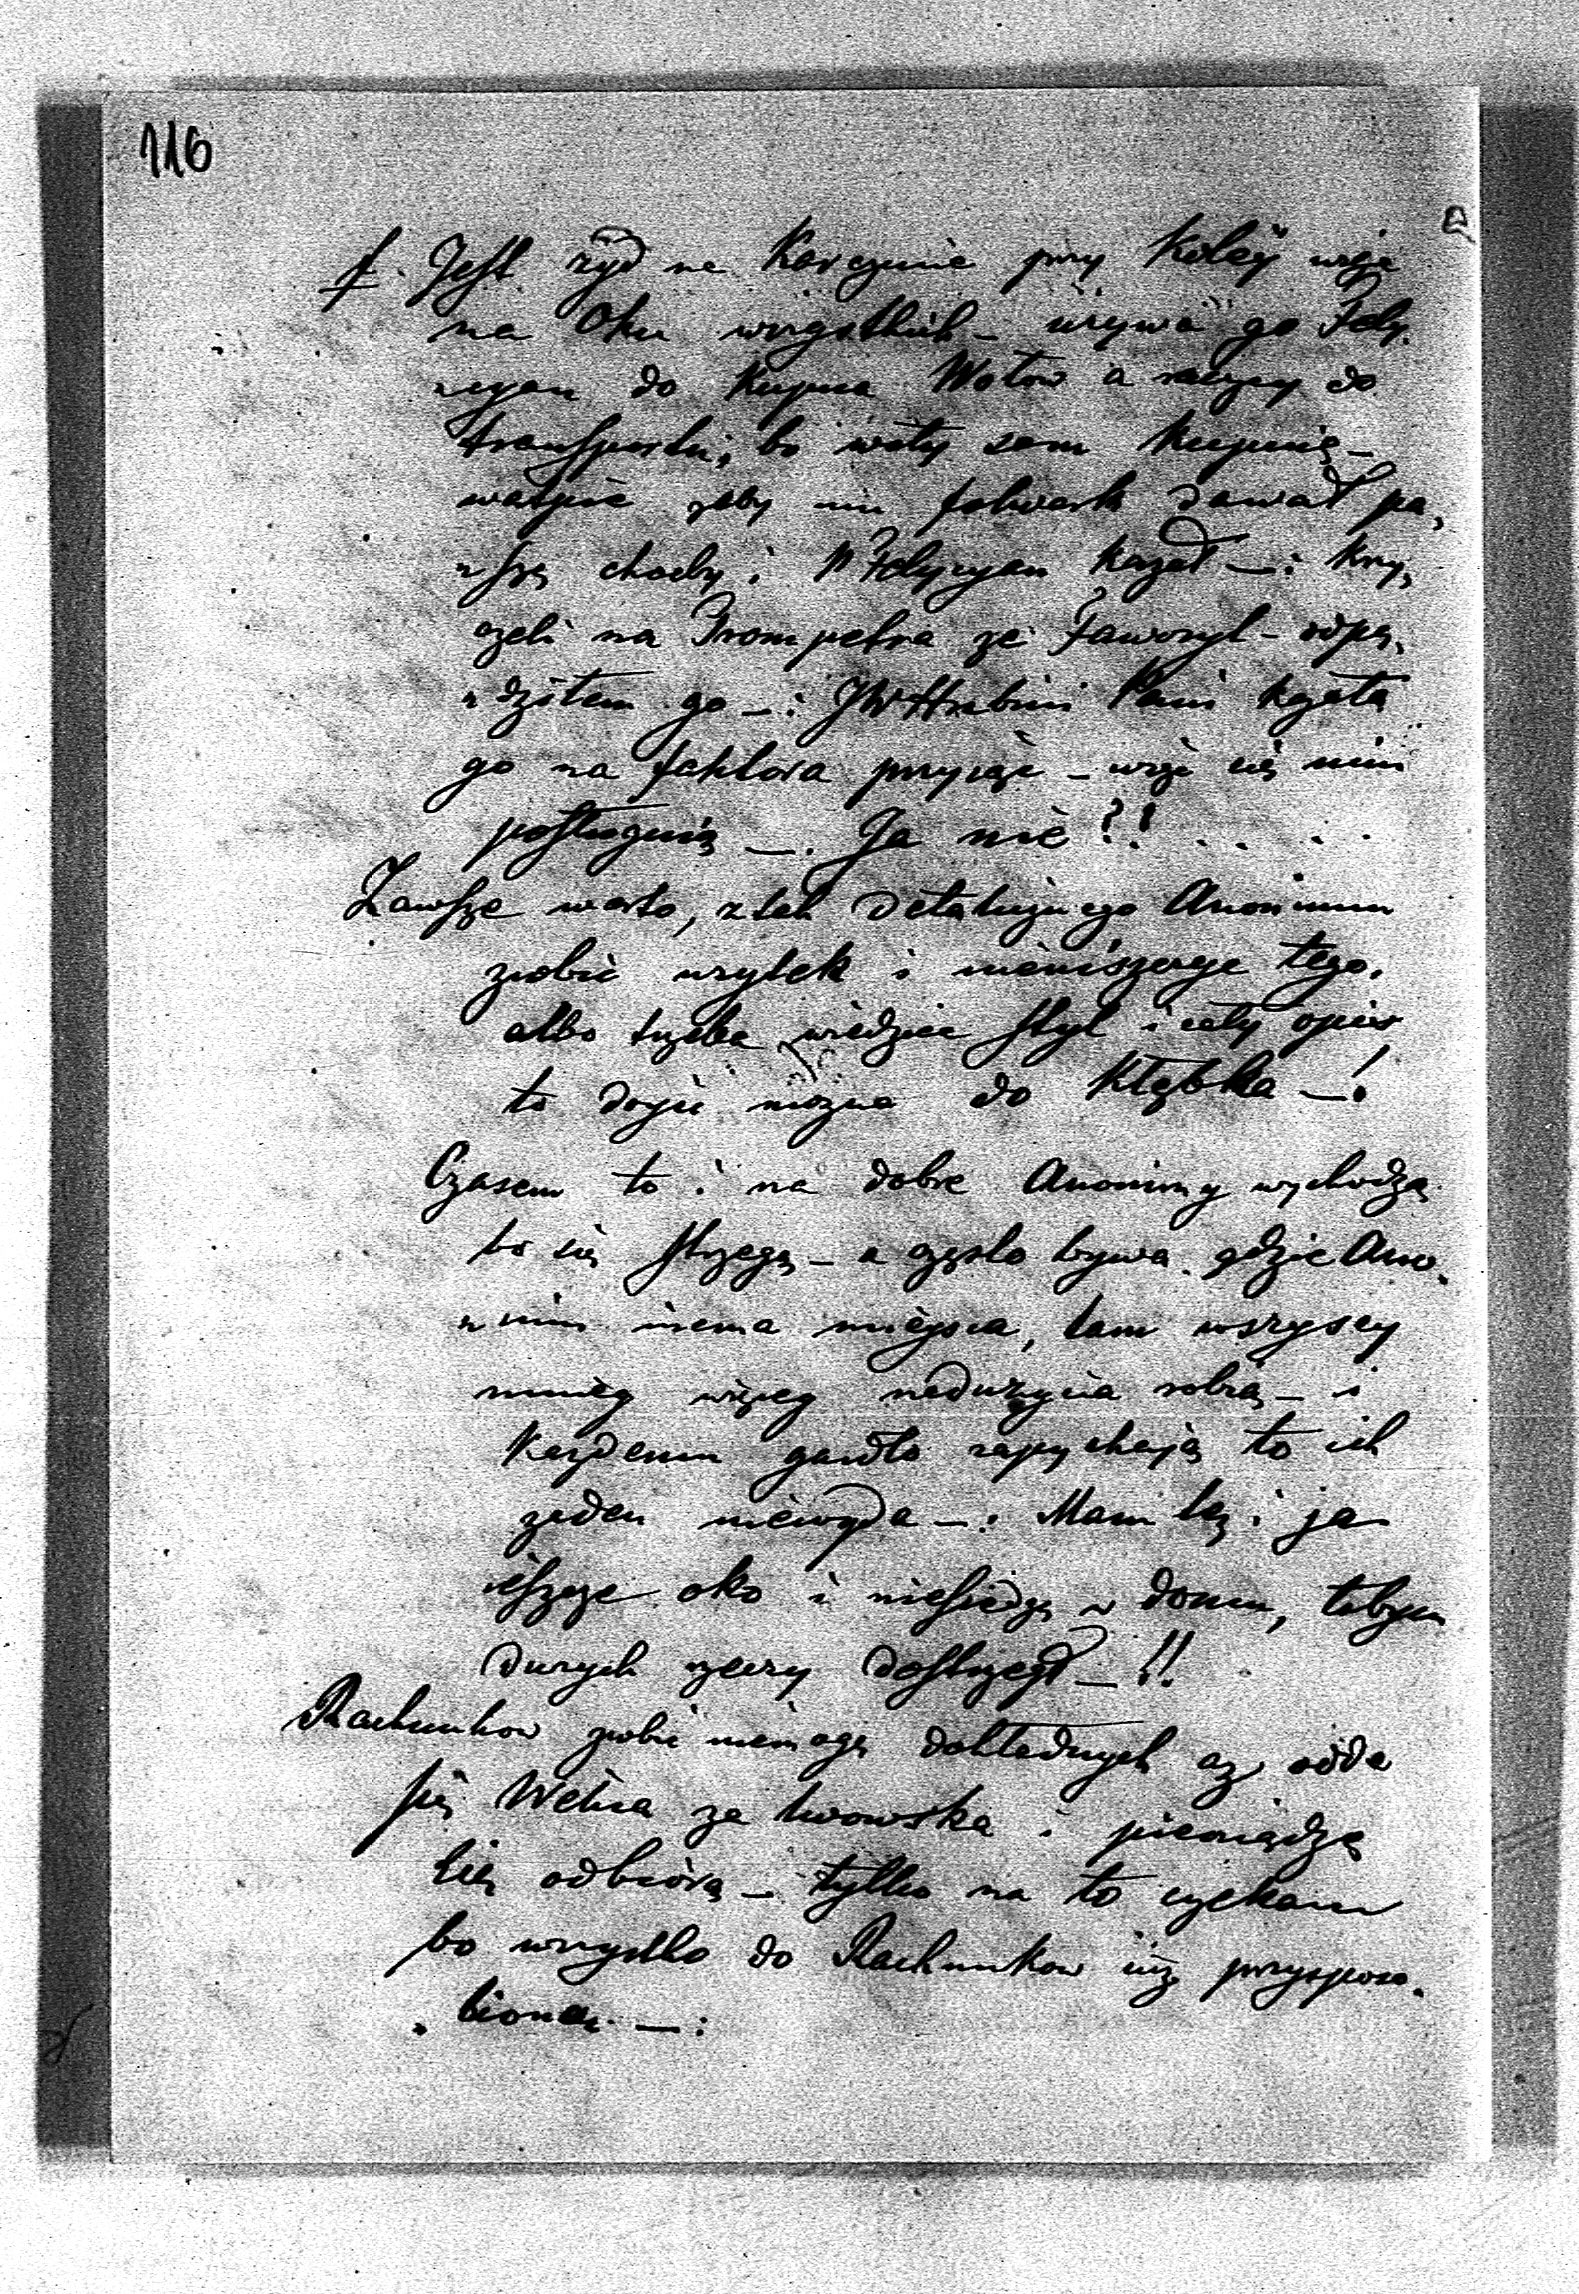 116
f. Jest żyd na Karczmie przy Koleÿ więc
na Oku wszystkich – używa go Fely,
„cyan do Kupna Wołow a raczey do
transportu, bo woły sam Kupuię –
wątpię żeby mu folwark dawał pa„
„szę choćby i P Felycyan kazał –: krzy„
czeli na Trompetra że Faworyt – odpę„
„dziłem go –: JWHrabini Pani kazała
go na faktora przyiąć – więc się nim
posługuią –. Ja nie?! . . . .
Zawsze warto, z tak detalicznego Anonimu
zrobić użytek i
albo trzeba wiedzieć styl i cały opis
to dojść można do Kłębka –!
Czasem to i na dobre Anonimy wychodzą
bo się strzegą – a często bywa gdzie Ano„
„nim niema mieysca, tam wszyscy
mniey więcey nadużycia robią – i
Każdemu gardło zapychaią to ich
żaden niewyda –: Mam też i ja
ieszcze oko i niesiedzę w domu, tobym
dużych rzeczy dostrzegł – !!
Rachunkow zrobić niemogę dokładnych aż odda
się Wełna za lwowska i pieniądze
się odbiorą – tylko na to czekam
bo wszystko do Rachunkow iuż przysposo„
„bione –: